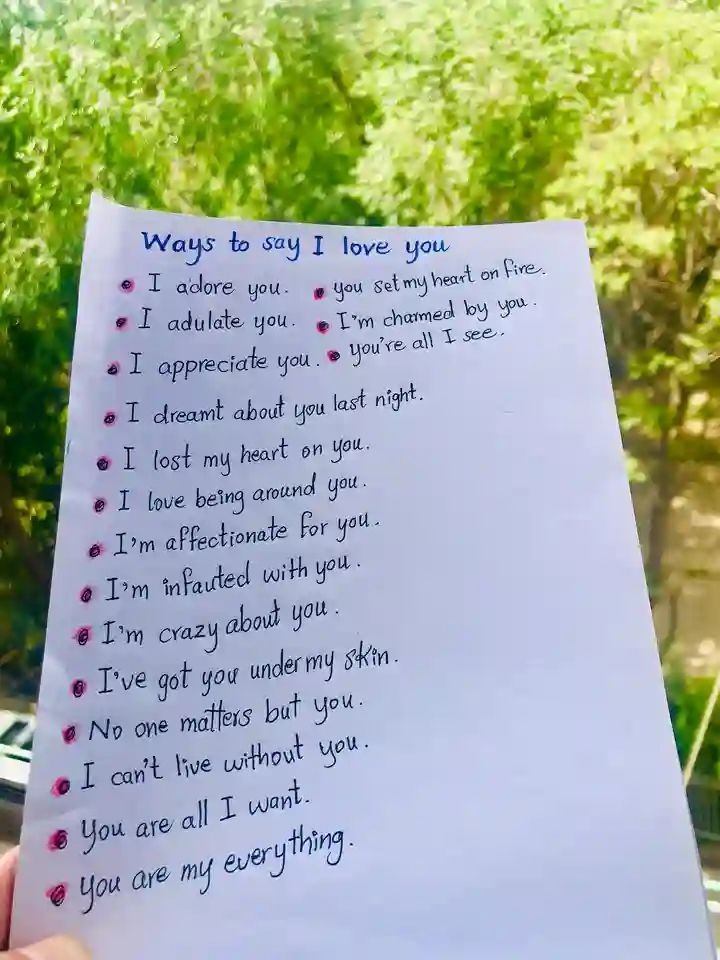 Ways to say I love you
• I adore you. • you set my heart on fire.
• I adulate you. • I'm charmed by you.
• I appreciate you. • you're all I see.
• I dreamt about you last night.
• I lost my heart on you.
• I love being around you.
• I'm affectionate for you.
• I'm infauted with you.
• I'm crazy about you.
• I've got you under my skin.
• No one matters but you.
• I can't live without you.
• You are all I want.
• You are my everything.